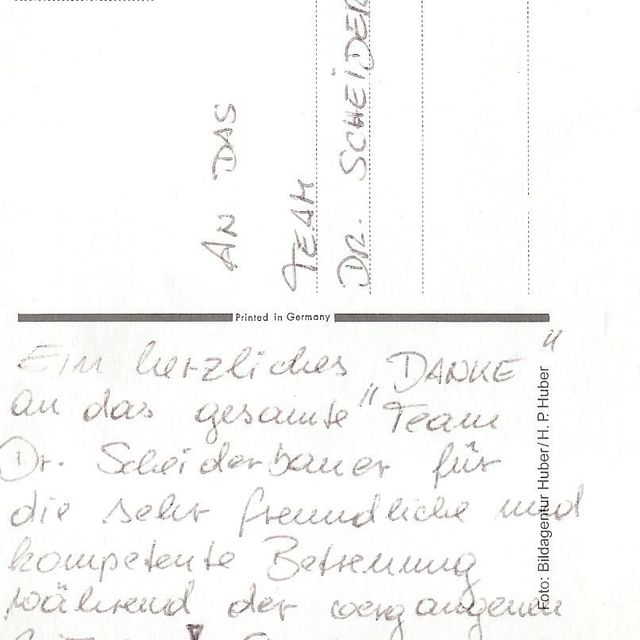 AN DAS
TEAM
DR. SCHEIDER
Printed in Germany
Ein herzliches "DANKE"
an das gesamte Team
Dr. Scheiderbauer für
die sehr freundliche und
kompetente Betreuung
während der vergangenen
Foto: Bildagentur Huber/H. P. Huber